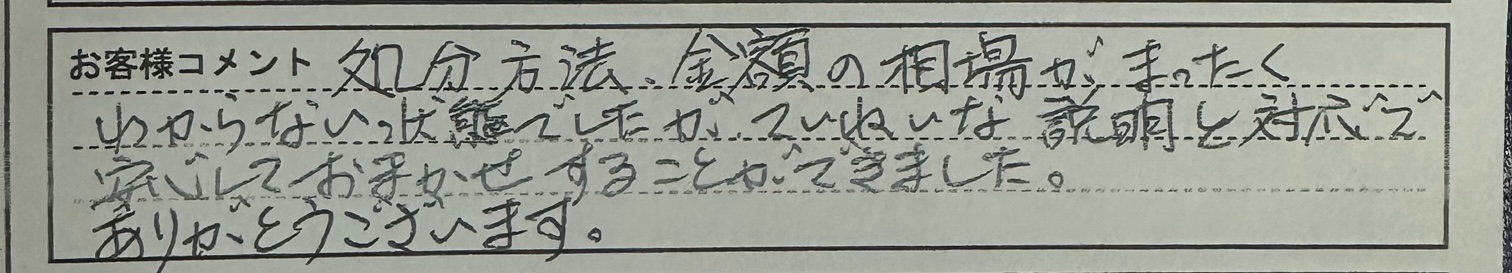 お客様コメント 処分方法、金額の相場がまったく
わからない状態でしたが、ていねいな説明と対応で
安心しておまかせすることができました。
ありがとうございます。